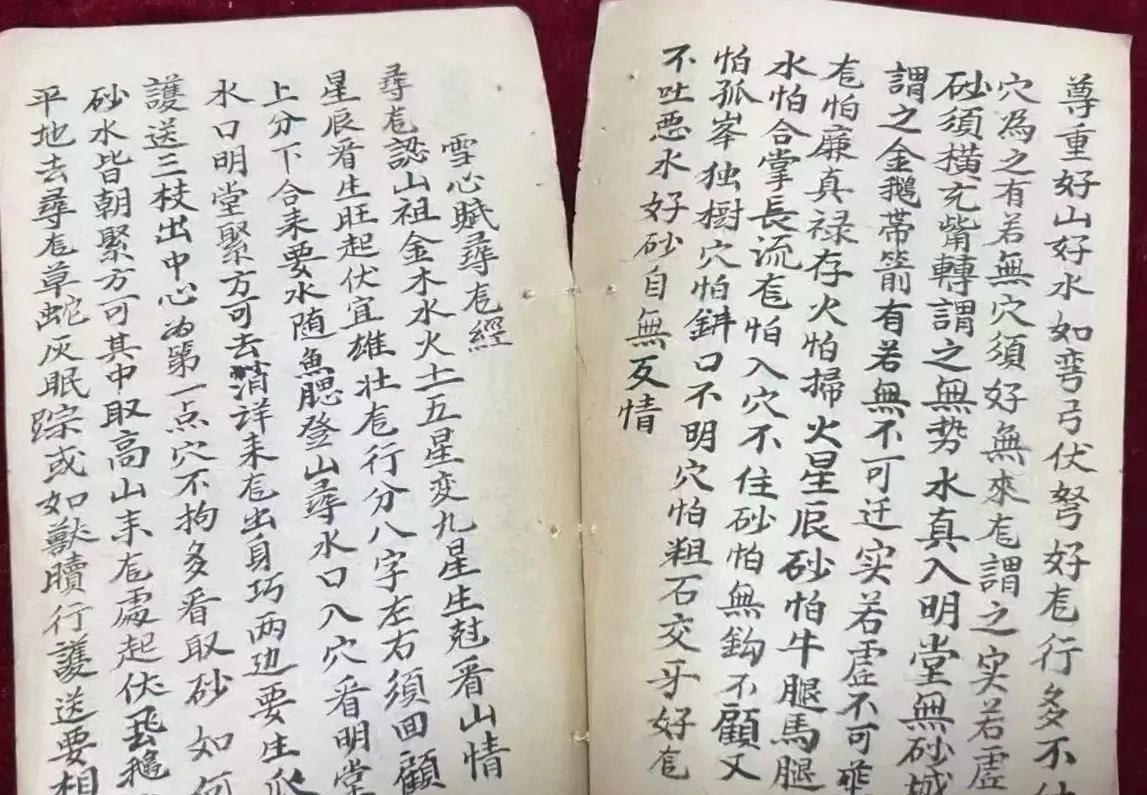 尊重好山好水如弯弓伏弩好龙行多不
穴為之有若無穴須好無來龙謂之实若虛
砂須橫充嘴轉謂之無势水真入明堂無砂城
謂之金鵝帶箭有若無不可迁实若虛不可
龙怕廉真禄存火怕掃火星辰砂怕牛腿馬腿
水怕合掌長流龙怕入穴不住砂怕無鈎不顧又
怕孤峯独樹穴怕缾口不明穴怕粗石交牙好龙
不吐恶水好砂自無反情
雪心賦尋龙經
尋龙認山祖金木水火土五星变九星生尅看山情
星辰看生旺起伏宜雄壮龙行分八字左右須回顧
上分下合耒要水随魚腮登山尋水口入穴看明堂
水口明堂緊方可去消详耒龙出身巧两边要生爪
護送三枝出中心为第一点穴不拘多看取砂如何
砂水皆朝緊方可其中取高山耒龙處起伏飛鵝
平地去尋龙草蛇灰眠踪或如獸牘行護送要相